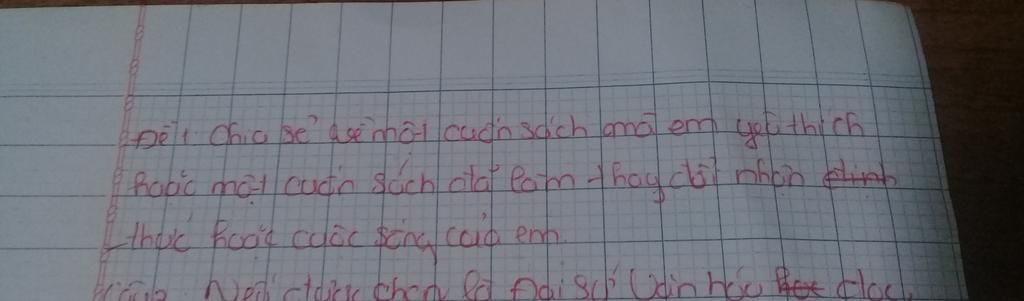 Đề 1: Chia sẻ về một cuốn sách mà em yêu thích
hoặc một cuốn sách đã làm thay đổi nhận
thức hoặc cuộc sống của em.
Nếu được chọn là Đại sứ Văn hóa đọc,